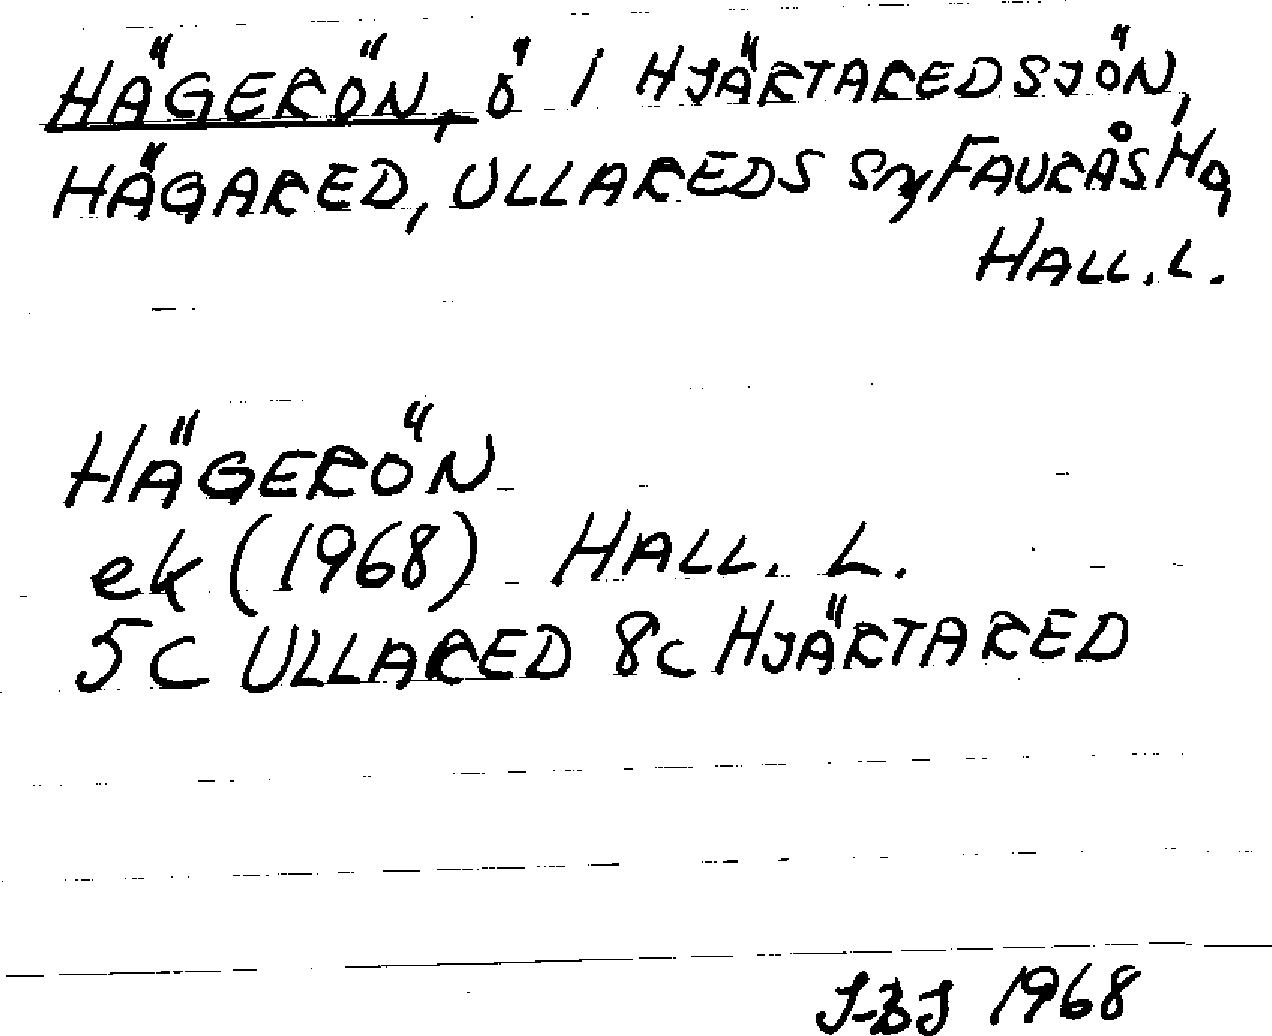 HÄGERÖN, ö i HJÄRTAREDSJÖN,
HÄGARED, ULLAREDS Sn, FAURÅS Hd,
HALL. L.
HÄGERÖN
ek (1968) HALL. L.
5C ULLARED 8c HJÄRTARED
J-BJ 1968